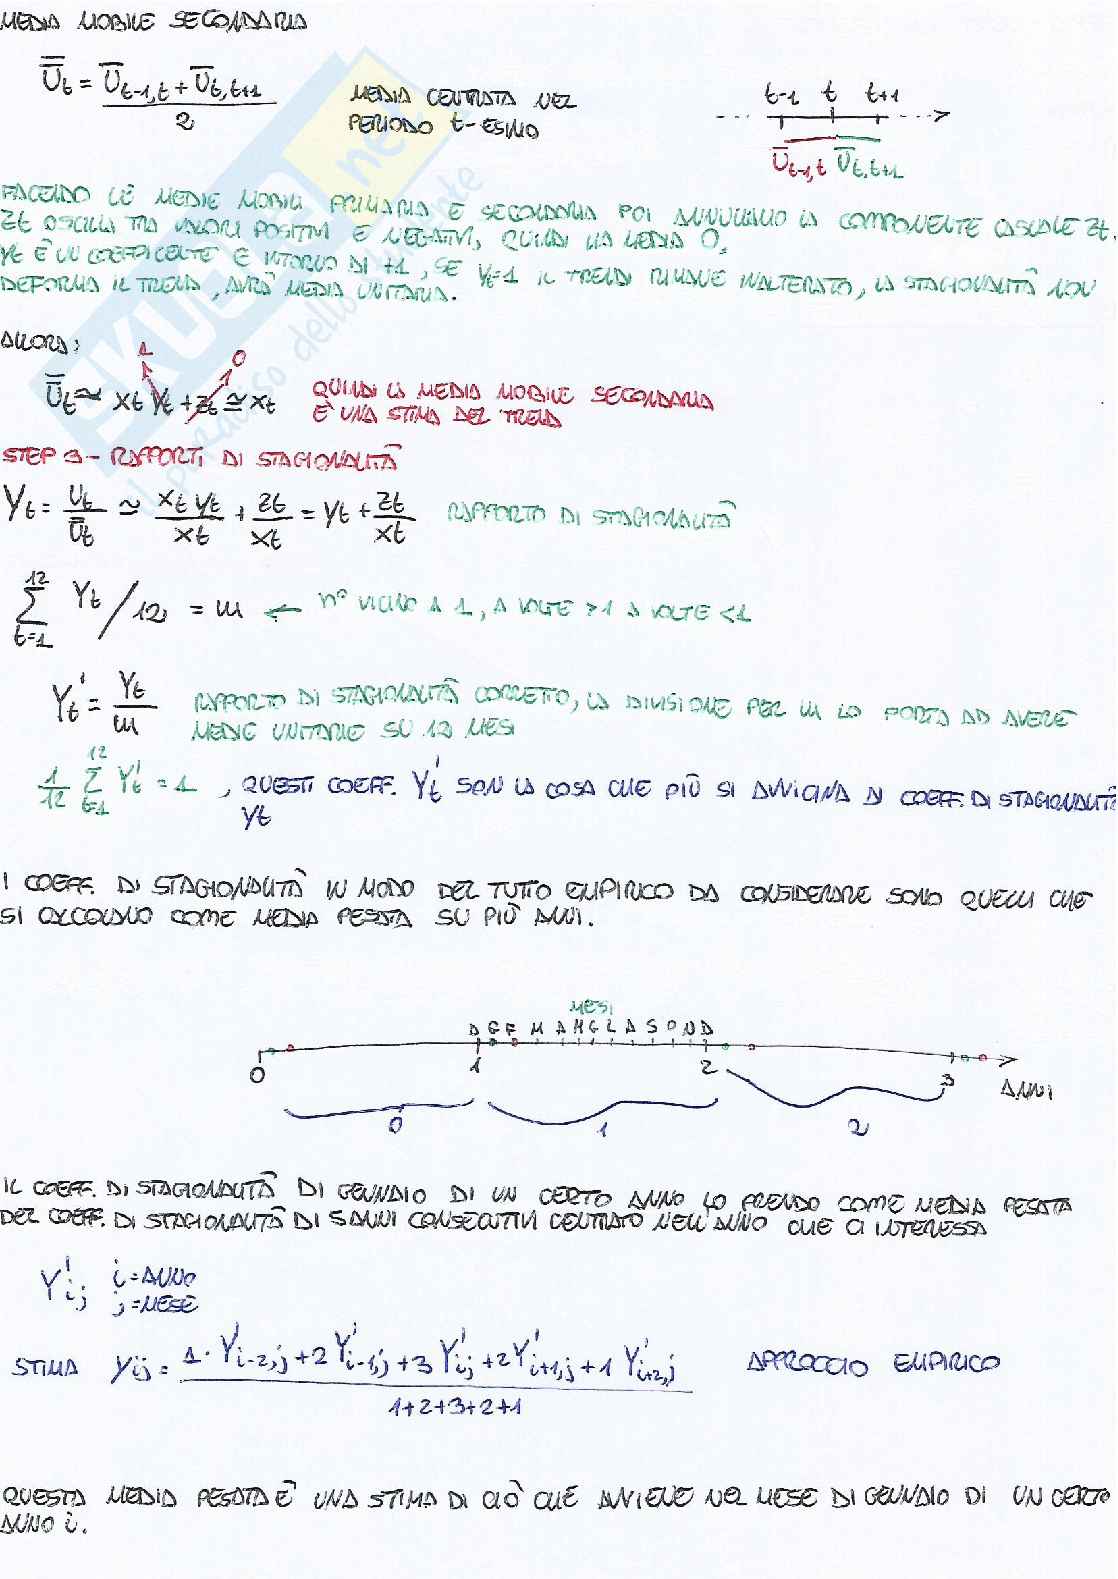 MEDIA MOBILE SECONDARIA
Ū̄t = Ūt-1,t + Ūt,t+1 / 2
MEDIA CENTRATA NEL
PERIODO t-ESIMO
t-1 t t+1
Ūt-1,t Ūt,t+1
FACENDO LE MEDIE MOBILI PRIMARIA E SECONDARIA POI ANNULLIAMO LA COMPONENTE CASUALE Zt.
Zt OSCILLA TRA VALORI POSITIVI E NEGATIVI, QUINDI HA MEDIA 0.
Yt È UN COEFFICENTE E INTORNO DI +1, SE Yt=1 IL TREND RIMANE INALTERATO, LA STAGIONALITÀ NON
DEFORMA IL TREND, AVRÀ MEDIA UNITARIA.
ALLORA:
1 0
Ū̄t ≃ xt yt + zt ≃ xt
QUINDI LA MEDIA MOBILE SECONDARIA
È UNA STIMA DEL TREND
STEP 3 - RAPPORTI DI STAGIONALITÀ
Yt = Ut / Ū̄t ≃ xt yt / xt + zt / xt = yt + zt / xt RAPPORTO DI STAGIONALITÀ
12 Σ t=1 Yt / 12 = m ← N° VICINO A 1, A VOLTE >1 A VOLTE <1
Yt' = Yt / m
RAPPORTO DI STAGIONALITÀ CORRETTO, LA DIVISIONE PER M LO PORTA AD AVERE
MEDIE UNITARIE SU 12 MESI
1/12 12 Σ t=1 Yt' = 1 , QUESTI COEFF. Yt' SON LA COSA CHE PIÙ SI AVVICINA AI COEFF. DI STAGIONALITÀ
yt
I COEFF. DI STAGIONALITÀ IN MODO DEL TUTTO EMPIRICO DA CONSIDERARE SONO QUELLI CHE
SI CALCOLANO COME MEDIA PESATA SU PIÙ ANNI.
MESI
D G F M A M G L A S O N D
0 1 2 3 ANNI
0 1 2
IL COEFF. DI STAGIONALITÀ DI GENNAIO DI UN CERTO ANNO LO PRENDO COME MEDIA PESATA
DEL COEFF. DI STAGIONALITÀ DI 5 ANNI CONSECUTIVI CENTRATO NELL'ANNO CHE CI INTERESSA
Y'ij i = ANNO
j = MESE
STIMA yij = 1·Y'i-2,j + 2Y'i-1,j + 3Y'ij + 2Y'i+1,j + 1Y'i+2,j / 1+2+3+2+1 APPROCCIO EMPIRICO
QUESTA MEDIA PESATA È UNA STIMA DI CIÒ CHE AVVIENE NEL MESE DI GENNAIO DI UN CERTO
ANNO i.